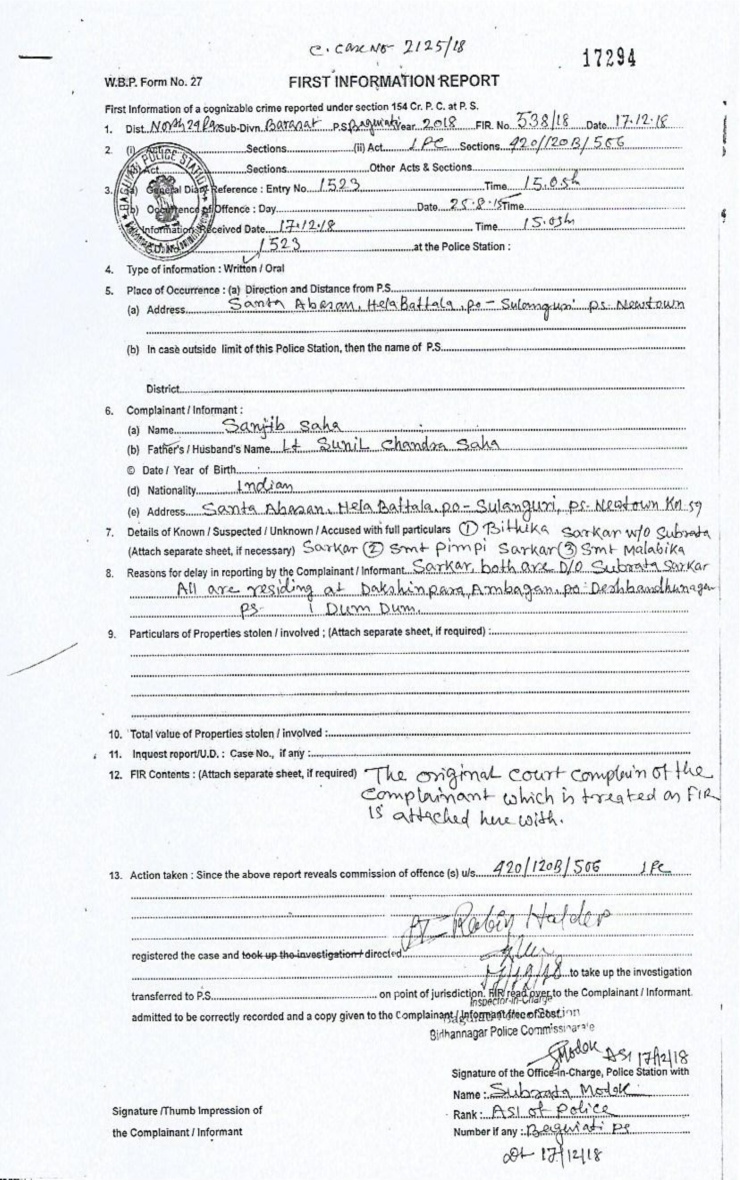 C. Case No 2125/18
17294
W.B.P. Form No. 27
FIRST INFORMATION REPORT
First Information of a cognizable crime reported under section 154 Cr. P. C. at P. S.
1. Dist. North 24 Pgs Sub-Divn. Barasat P.S. Baguiati Year 2018 FIR. No. 538/18 Date 17.12.18
2. (i) Sections (ii) Act IPC Sections 420/120B/506
Act Sections Other Acts & Sections
3. (a) General Diary Reference : Entry No 1523 Time 15.05h
(b) Occurrence of Offence : Day Date 25.8.15 Time
Information Received Date 17.12.18 Time 15.05h
G.D. No. 1523 at the Police Station :
4. Type of information : Written / Oral
5. Place of Occurrence : (a) Direction and Distance from P.S.
(a) Address Santa Abasan, Hela Battala, po - Sulanguri ps. Newtown
(b) In case outside limit of this Police Station, then the name of P.S.
District
6. Complainant / Informant :
(a) Name Sanjib Saha
(b) Father's / Husband's Name Lt Sunil Chandra Saha
© Date / Year of Birth
(d) Nationality Indian
(e) Address Santa Abasan, Hela Battala, po - Sulanguri, ps. Newtown Kol 59
7. Details of Known / Suspected / Unknown / Accused with full particulars ① Bithika Sarkar w/o Subrata
(Attach separate sheet, if necessary) Sarkar ② Smt Pimpi Sarkar ③ Smt Malabika
8. Reasons for delay in reporting by the Complainant / Informant Sarkar, both are D/O Subrata Sarkar
All are residing at Dakshinpara, Ambagan, po Deshbandhunagar
ps Dum Dum.
9. Particulars of Properties stolen / involved ; (Attach separate sheet, if required) :
10. Total value of Properties stolen / involved :
11. Inquest report/U.D. : Case No., if any :
12. FIR Contents : (Attach separate sheet, if required) The original court complain of the
Complainant which is treated as FIR
is attached here with.
13. Action taken : Since the above report reveals commission of offence (s) u/s. 420/120B/506 IPC
Rabin Halder
registered the case and took up the investigation / directed
17/12/18 to take up the investigation
transferred to P.S. on point of jurisdiction. FIR read over to the Complainant / Informant.
Inspector-in-Charge
admitted to be correctly recorded and a copy given to the Complainant / Informant free of cost.
Baguiati Police Station
Bidhannagar Police Commissionarate
SModok ASI 17/12/18
Signature of the Office-in-Charge, Police Station with
Name : Subrata Modok
Signature /Thumb Impression of
Rank : ASI of Police
the Complainant / Informant
Number if any : Baguiati PS
Dt 17/12/18